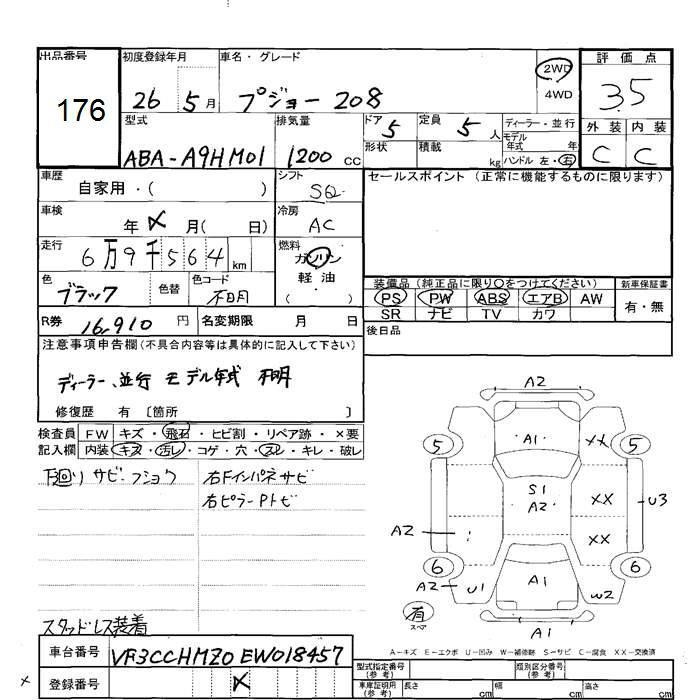 出品番号
176
初度登録年月
26 5月
車名・グレード
プジョー 208
2WD
4WD
評価点
3.5
型式
ABA-A9HM01
排気量
1200 cc
ドア
5
定員
5 人
ディーラー・並行
モデル年式 年
外装 内装
C C
形状
積載
kg
ハンドル 左・右
車歴
自家用・( )
シフト
車検
年 × 月( 日)
冷房
AC
セールスポイント (正常に機能するものに限ります)
走行
6万9千564 km
燃料
ガソリン
軽・油
( )
色
ブラック
色替
色コード
不明
装備品(純正品に限り○をつけてください)
新車保証書
PS PW ABS エアB AW
SR ナビ TV カワ
有・無
R券 16,910 円
名変期限 月 日
後日品
注意事項申告欄(不具合内容等は具体的に記入して下さい)
ディーラー、並行 モデル年式 不明
修復歴 有 〔箇所 〕
検査員 FW キズ・飛石・ヒビ割・リペア跡・×要
記入欄 内装 キズ・汚レ・コゲ・穴・スレ・キレ・破レ
下回り サビ・フショク
右Fインパネサビ
右ピラーPトビ
スタッドレス装着
A2
A1
5
XX
5
S1
A2
XX
U3
A2
XX
6
6
A2
U1
A1
W2
有
スペア
A1
A-キズ E-エクボ U-凹み W-補修跡 S-サビ C-腐食 XX-交換済
車台番号 VF3CCHMZ0EW018457
型式指定番号(参考)
類別区分番号(参考)
× 登録番号 ×
車庫証明用(参考) 長さ cm 幅 cm 高さ cm